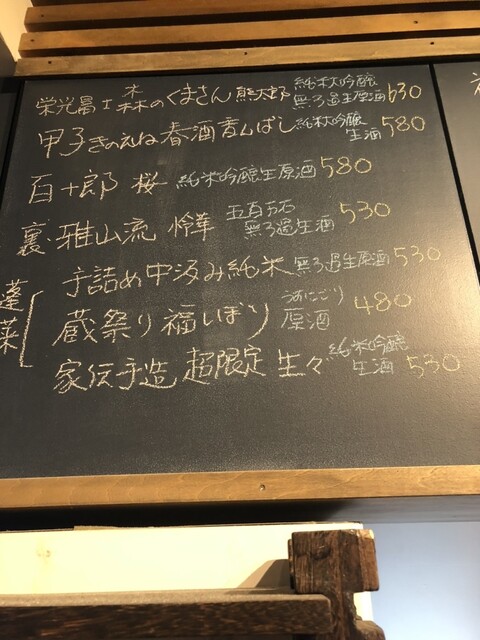 栄光冨士 森のくまさん 熊太郎 純米大吟醸 無ろ過生原酒 630
甲子きのえね 春酒香んばし 純米大吟醸 生酒 580
百十郎 桜 純米吟醸生原酒 580
裏・雅山流 怜華 五百万石 無ろ過生酒 530
蓬莱
手詰め中汲み純米 無ろ過生原酒 530
蔵祭り福しぼり うすにごり 原酒 480
家伝手造 超限定 生々 純米吟醸 生酒 530